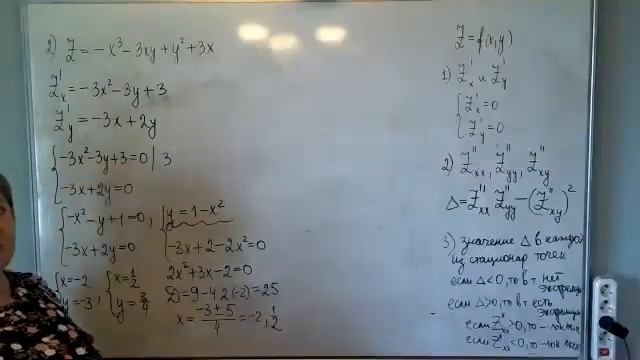 2) Z = -x³ - 3xy + y² + 3x
Z'x = -3x² - 3y + 3
Z'y = -3x + 2y
{ -3x² - 3y + 3 = 0 | 3
-3x + 2y = 0
{ -x² - y + 1 = 0,
-3x + 2y = 0
{ y = 1 - x²
-3x + 2 - 2x² = 0
2x² + 3x - 2 = 0
D = 9 - 4·2(-2) = 25
x = (-3 ± 5)/4 = -2, 1/2
{ x = -2
y = -3,
{ x = 1/2
y = 3/4
Z = f(x, y)
1) Z'x и Z'y
{ Z'x = 0
Z'y = 0
2) Z''xx, Z''yy, Z''xy
Δ = Z''xx Z''yy - (Z''xy)²
3) значение Δ в каждой
из стационар точек
если Δ<0, то в т. нет
экстремума
если Δ>0, то в т. есть
экстремум
если Z''xx >0, то – лок
если Z''xx <0, то – лок